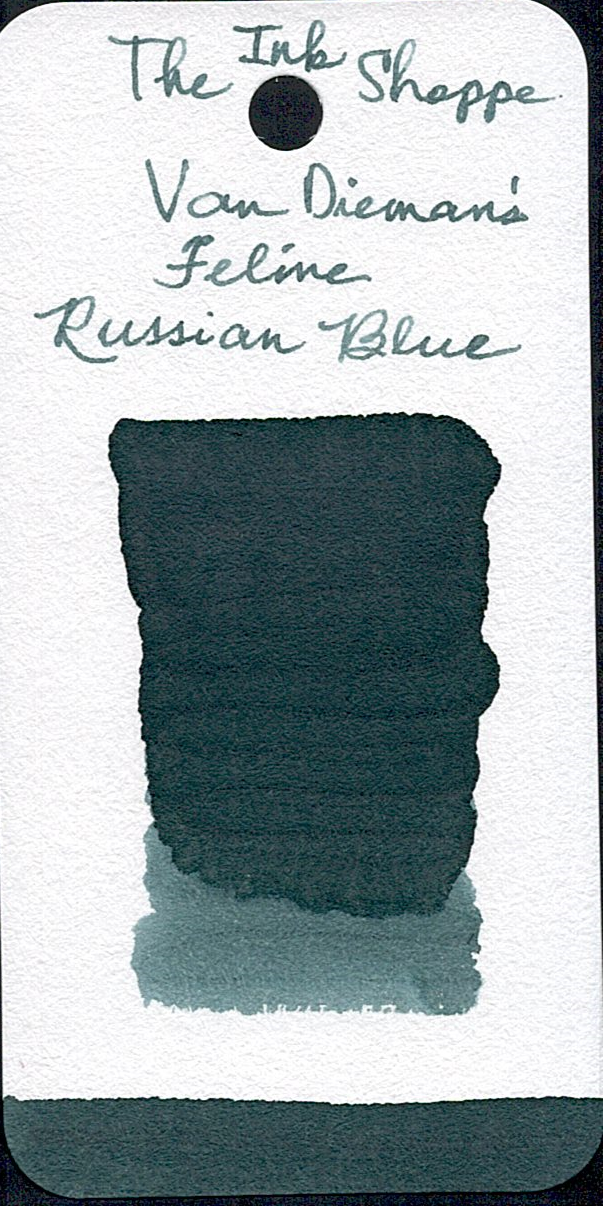 The Ink Shoppe
Van Dieman's
Feline
Russian Blue